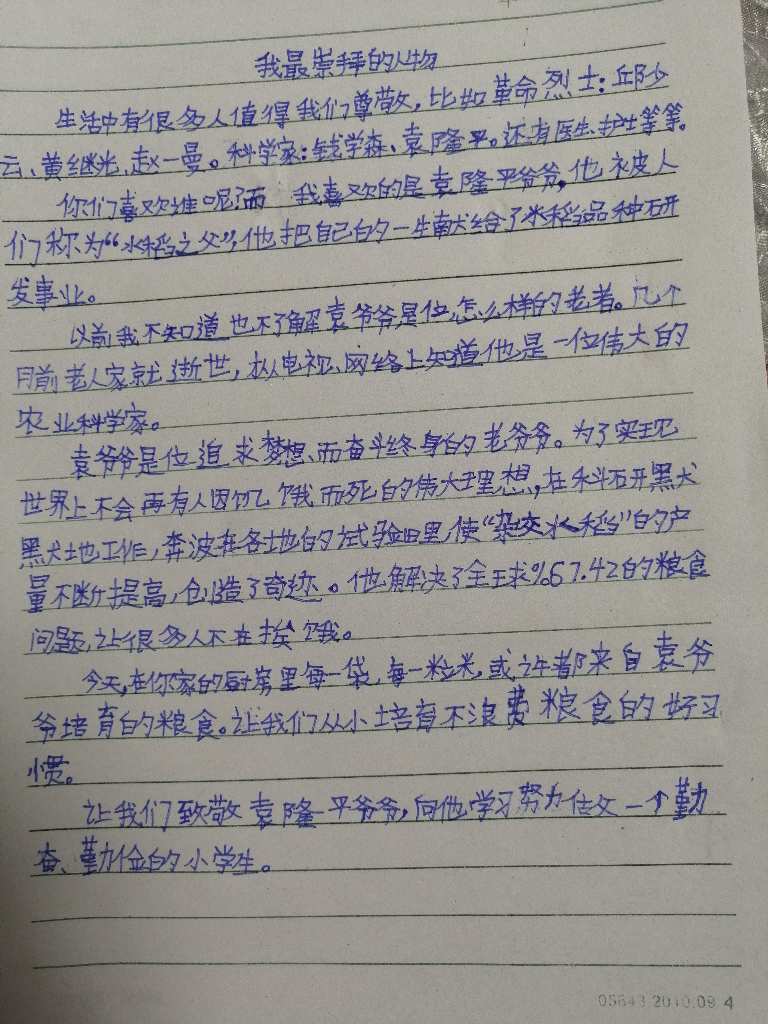 我最崇拜的人物
生活中有很多人值得我们尊敬，比如革命烈士：邱少
云、黄继光、赵一曼。科学家：钱学森、袁隆平。还有医生、护士等等。
你们喜欢谁呢？而 我喜欢的是袁隆平爷爷，他被人
们称为“水稻之父”，他把自己的一生献给了水稻品种研
发事业。
以前我不知道也不了解袁爷爷是位怎么样的老者。几个
月前老人家就逝世，从电视、网络上知道他是一位伟大的
农业科学家。
袁爷爷是位追求梦想、而奋斗终身的老爷爷。为了实现
世界上不会再有人因饥饿而死的伟大理想，在科研默
默地工作，奔波在各地的试验田里，使“杂交水稻”的产
量不断提高，创造了奇迹。他解决了全球%67.42的粮食
问题，让很多人不在挨饿。
今天，在你家的厨房里每一袋，每一粒米，或许都来自袁爷
爷培育的粮食。让我们从小培育不浪费粮食的好习
惯。
让我们致敬袁隆平爷爷，向他学习努力 一个勤
奋、勤俭的小学生。
05643 2010.09 4